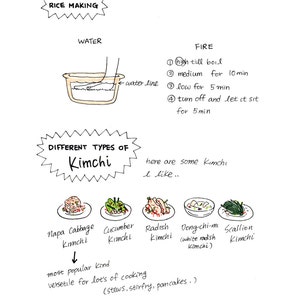 RICE MAKING
WATER
water line
FIRE
① high till boil
② medium for 10 min
③ low for 5 min
④ turn off and let it sit
for 5 min
DIFFERENT TYPES OF
Kimchi
here are some Kimchi
i like..
Napa Cabbage
Kimchi
Cucumber
Kimchi
Radish
Kimchi
Dong-chi-mi
(white radish
Kimchi)
Scallion
Kimchi
most popular kind
versatile for lots of cooking
(stews, stirfry, pancakes..)